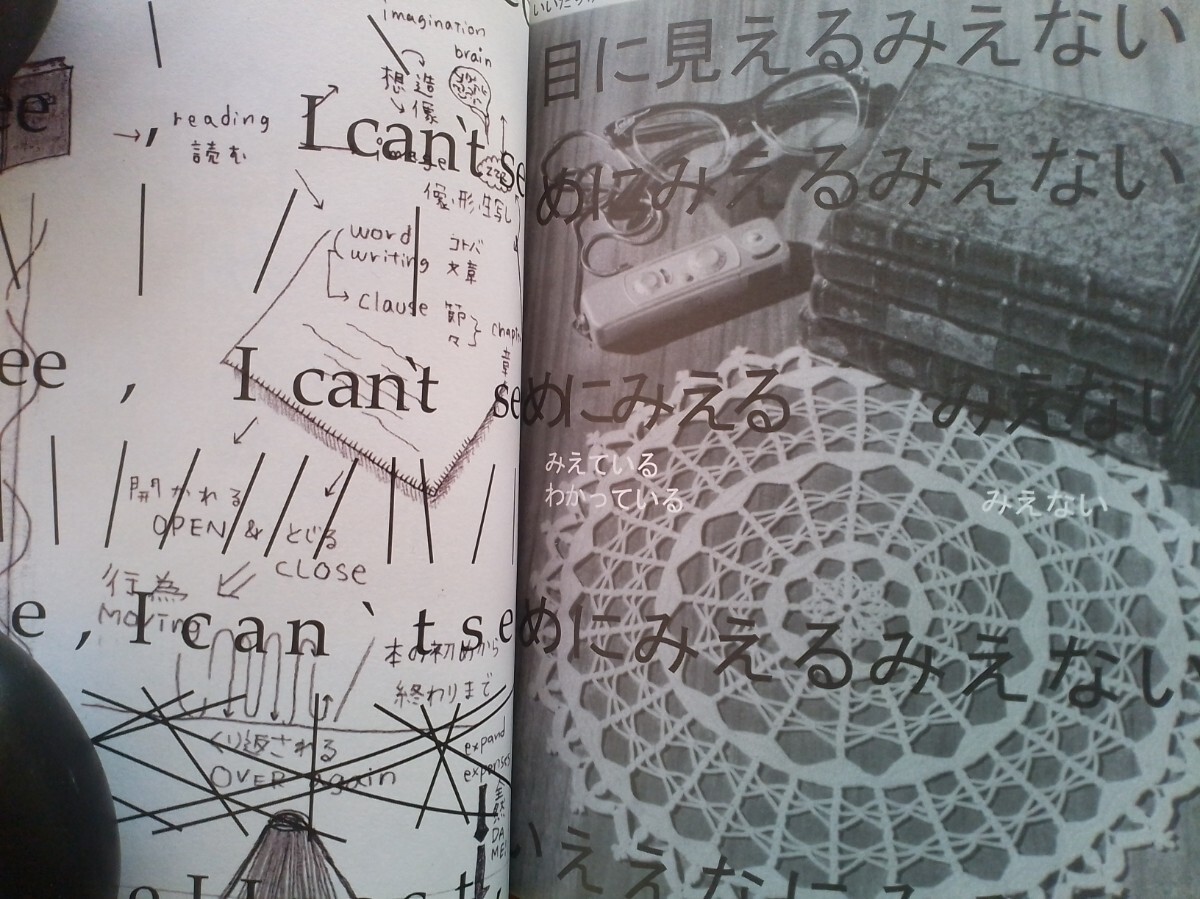 imagination
brain
想造
像
ee , I can`t se
reading
読む
image
像、形、生写し
word コトバ
writing 文章
clause 節々
章
ee , I can`t se
開かれる
OPEN & とじる
CLOSE
行為
MOVING
e , I can ` t se
本の初めから
終わりまで
くり返される
OVER again
expand
expenses
全然
DA
ME!
目に見えるみえない
めにみえるみえない
めにみえる みえない
みえている
わかっている
みえない
めにみえるみえない